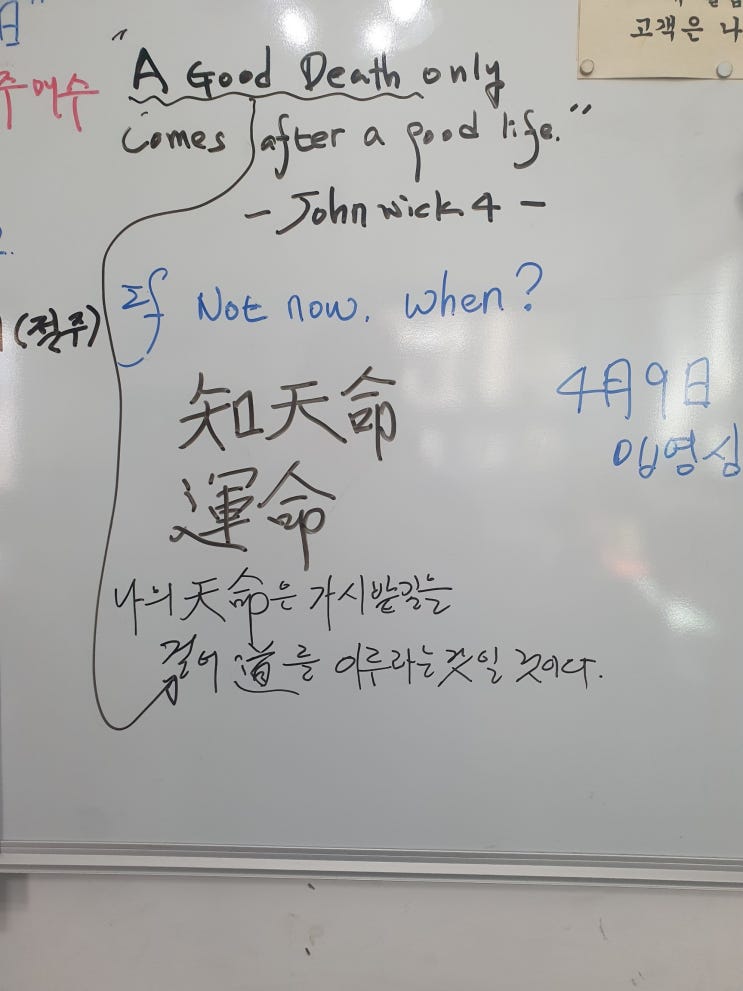 日"
고객은 나
주여수
"A Good Death only
comes after a good life."
- John wick 4 -
(절주)
If Not now, when?
知天命
4月9日
運命
나의 天命은 가시밭길을
걸어 道를 이루라는것일 것이다.